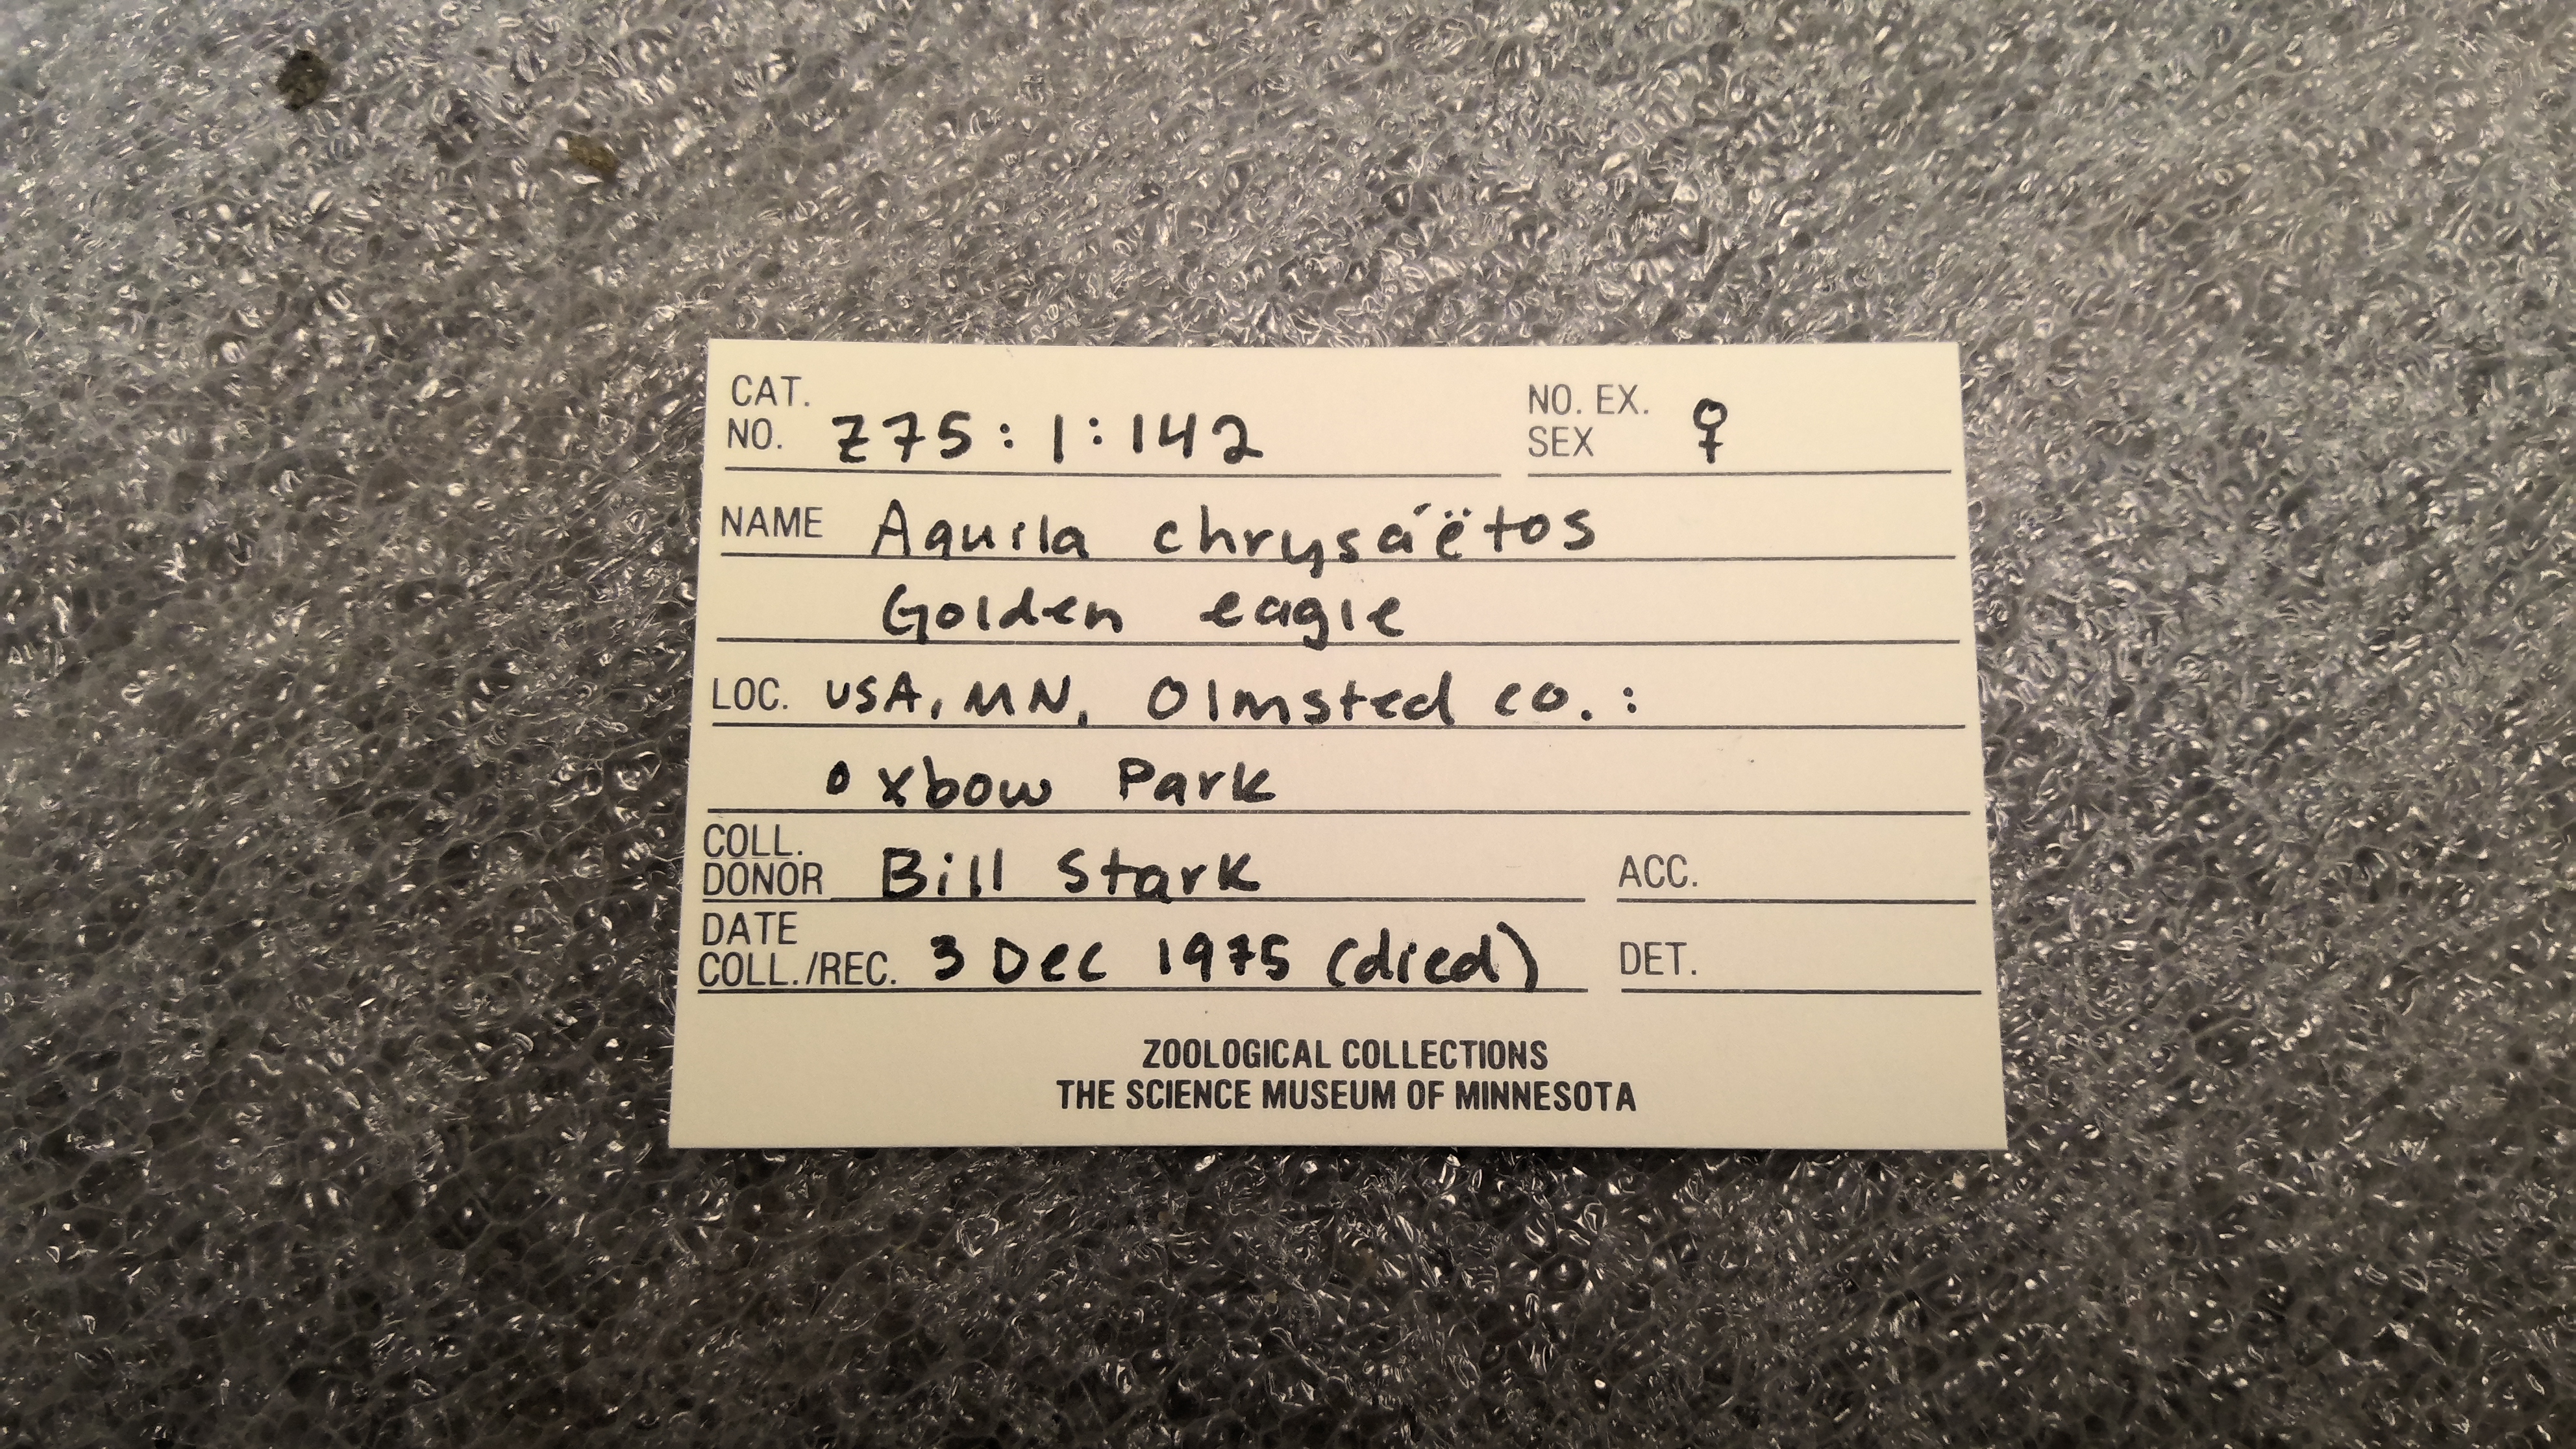 CAT. NO. Z75:1:142 NO. EX. SEX ♀
NAME Aquila chrysáëtos
Golden eagle
LOC. USA, MN, Olmsted co.:
Oxbow Park
COLL. DONOR Bill Stark ACC.
DATE COLL./REC. 3 Dec 1975 (died) DET.
ZOOLOGICAL COLLECTIONS
THE SCIENCE MUSEUM OF MINNESOTA